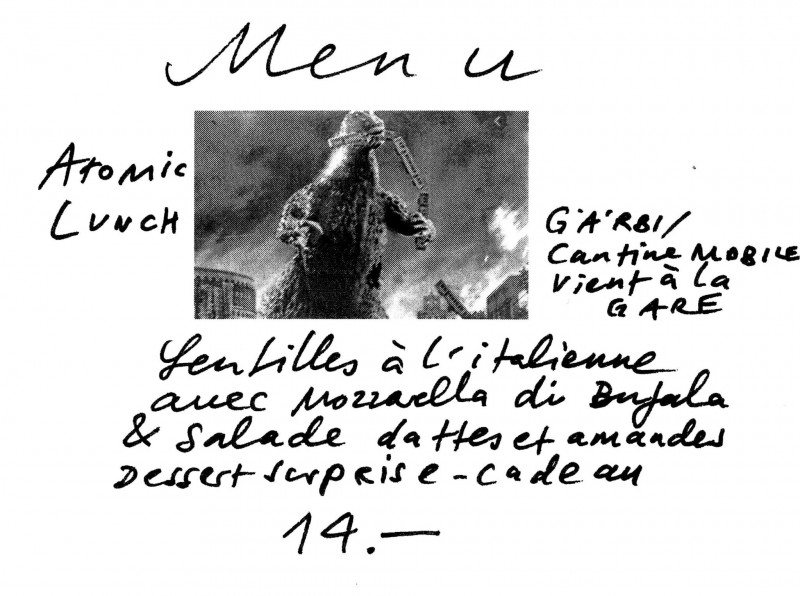 Menu
Atomic
Lunch
GÄRBI/
Cantine MOBILE
vient à la
GARE
Lentilles à l'italienne
avec Mozzarella di Bufala
& Salade dattes et amandes
Dessert surprise-cadeau
14.—